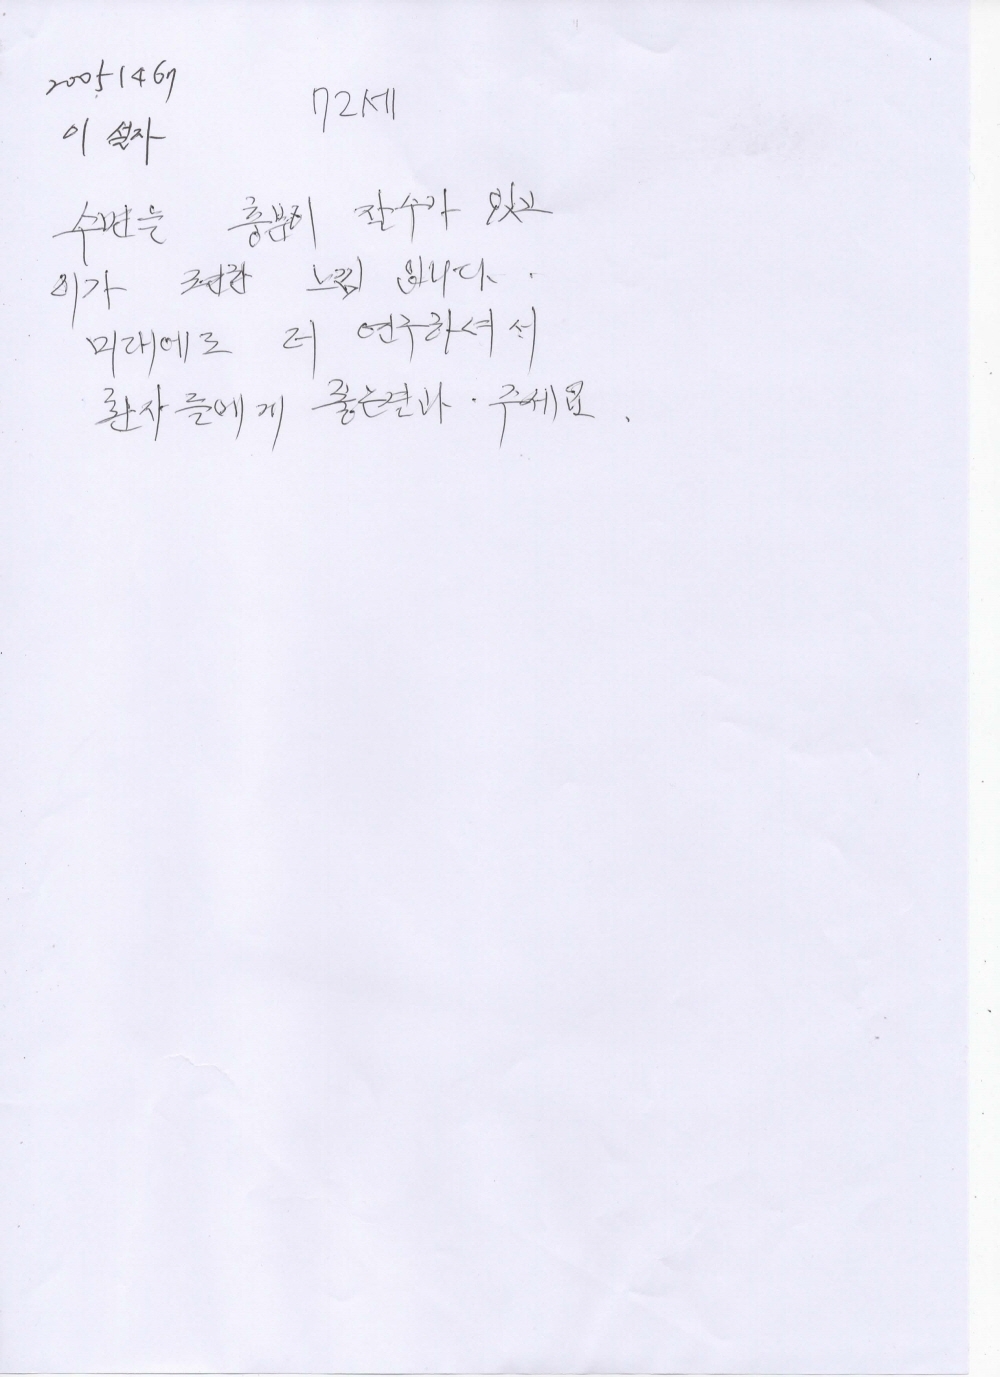 20051467
이 설자 72세
수면을 충분히 잘수가 있고
이가 편한 느낌 입니다.
미래에도 더 연구하셔서
환자들에게 좋은결과. 주세요.